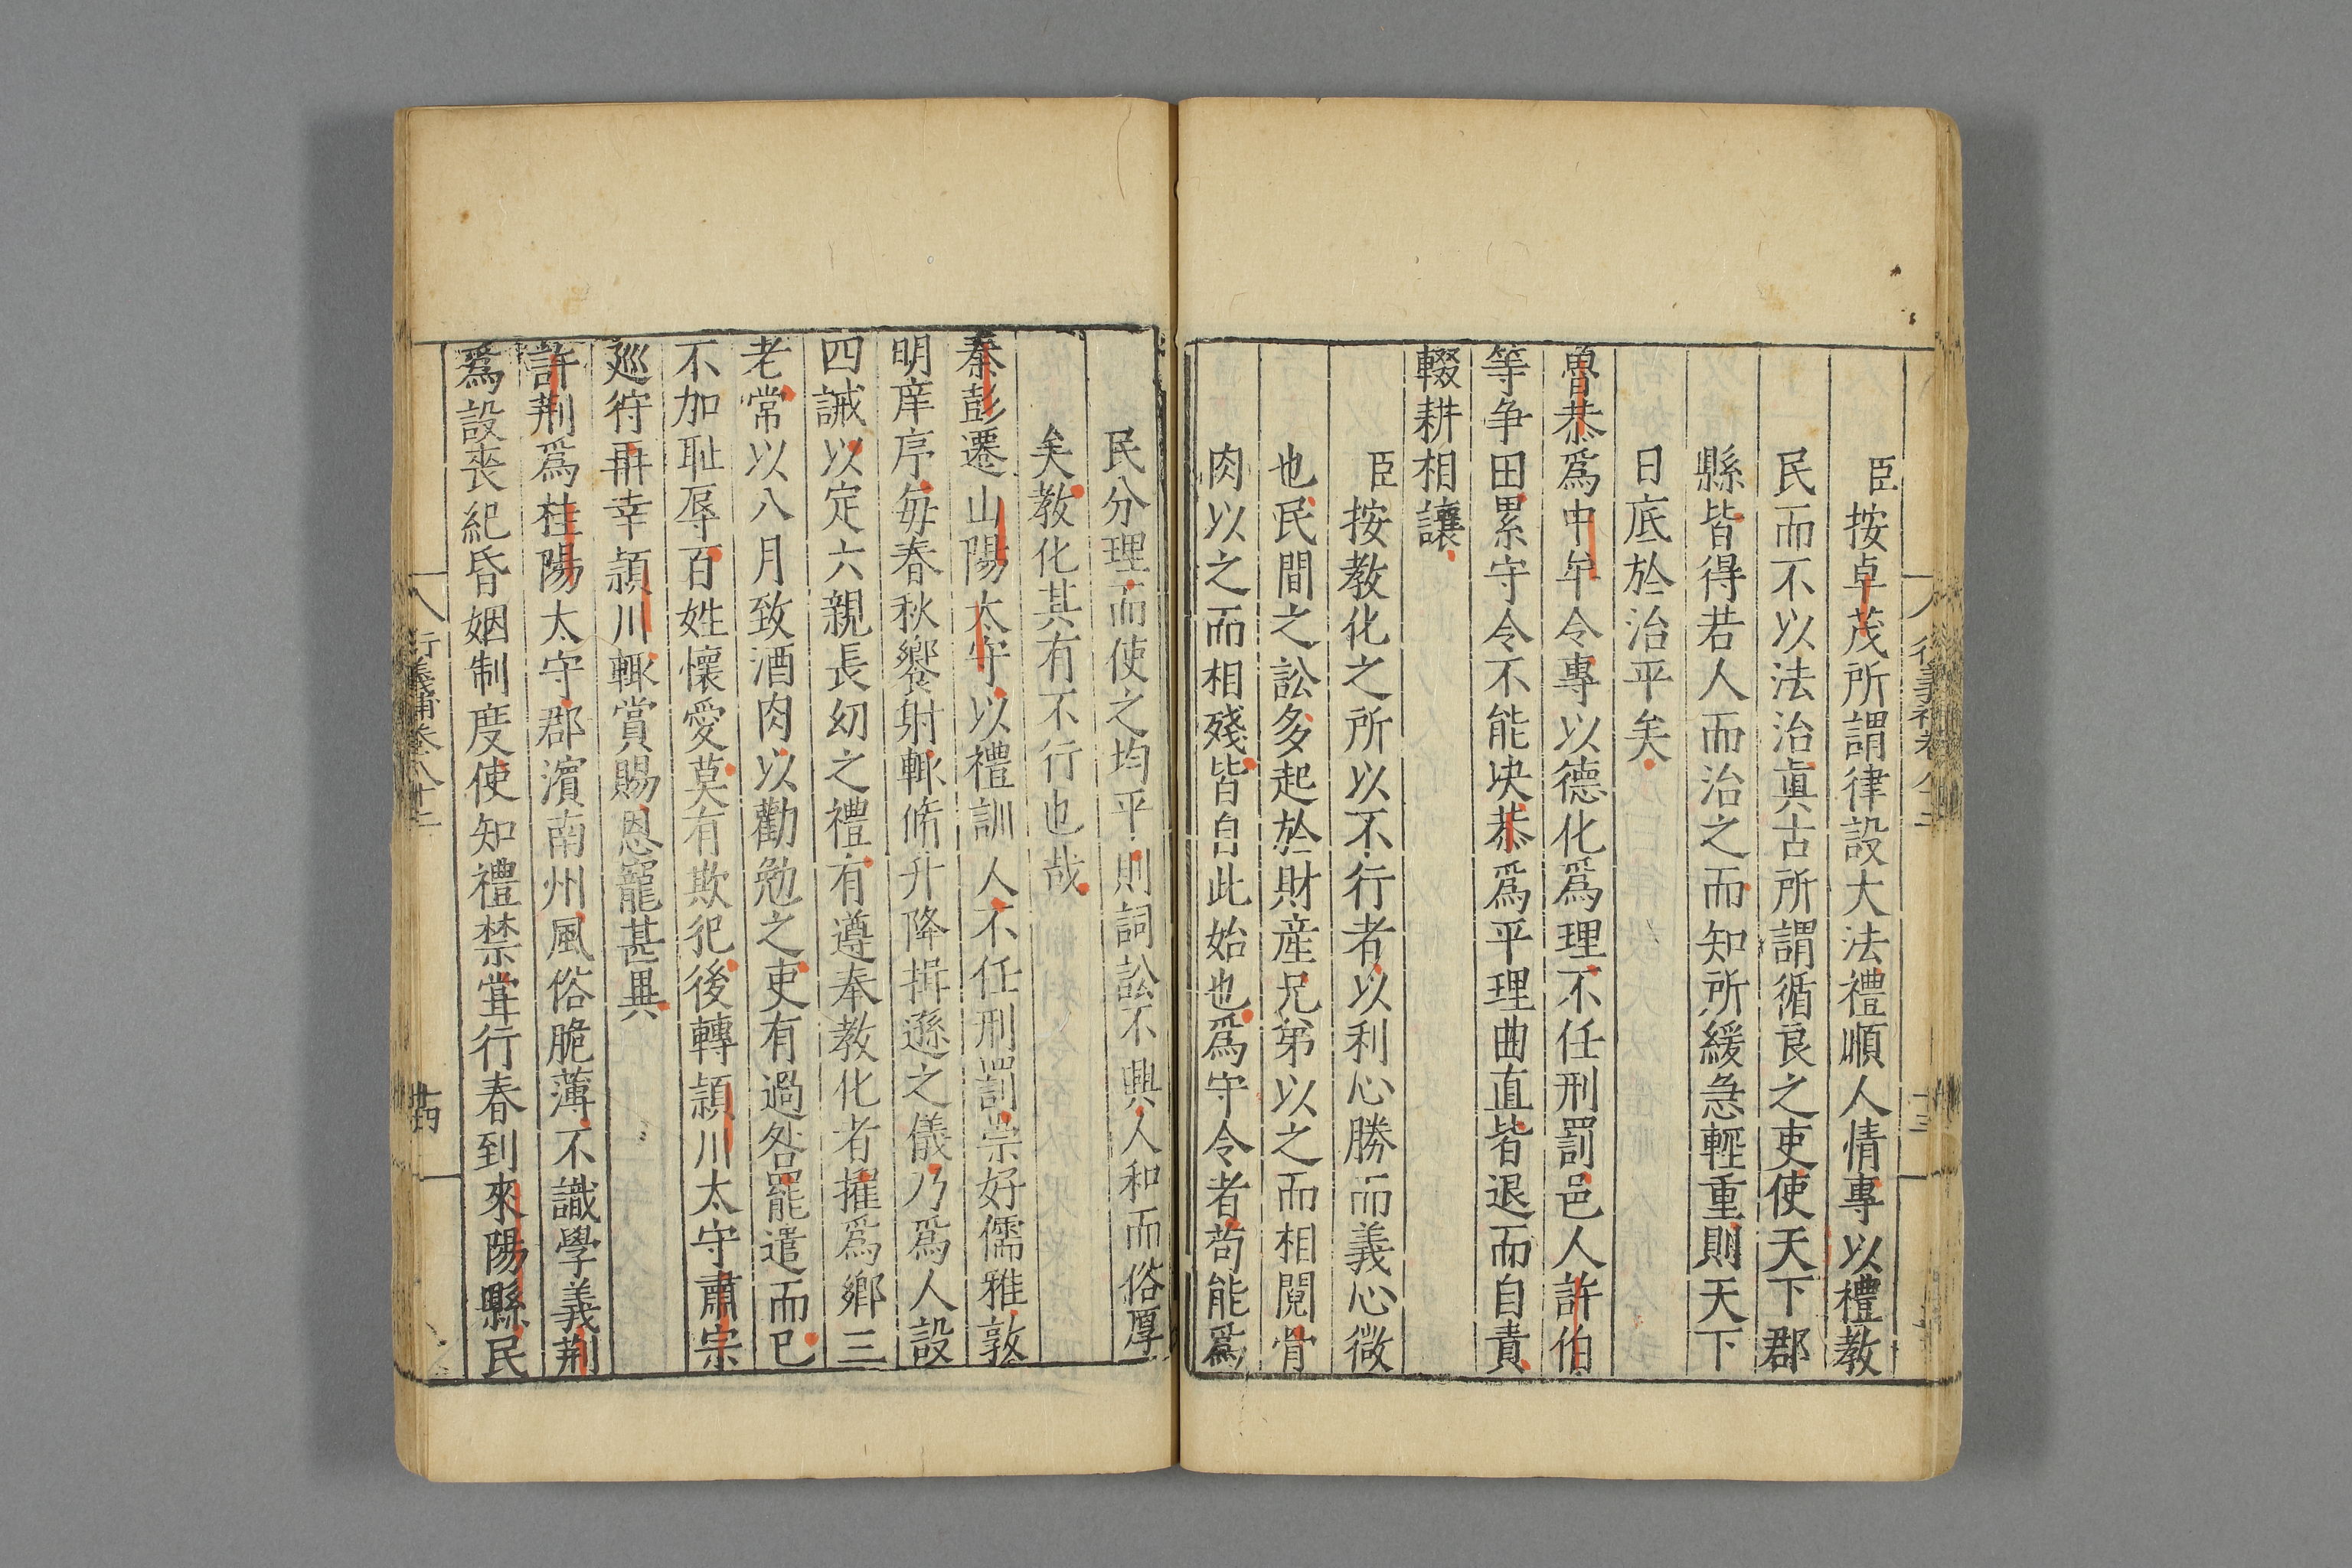 臣按卓茂所謂律設大法禮順人情專以禮教
民而不以法治眞古所謂循良之吏使天下郡
縣皆得若人而治之而知所緩急輕重則天下
日底於治平矣
魯恭爲中牟令專以德化爲理不任刑罰邑人許伯
等争田累守令不能决恭爲平理曲直皆退而自責
輟耕相讓
臣按教化之所以不行者以利心勝而義心微
也民間之訟多起於財産兄弟以之而相鬩骨
肉以之而相殘皆自此始也爲守令者苟能爲
民分理而使之均平則詞訟不興人和而俗厚
矣教化其有不行也哉
秦彭遷山陽太守以禮訓人不任刑罰崇好儒雅敦
明庠序每春秋饗射輒脩升降揖遜之儀乃爲人設
四誡以定六親長幼之禮有遵奉教化者擢爲鄉三
老常以八月致酒肉以勸勉之吏有過咎罷遣而已
不加耻辱百姓懷愛莫有欺犯後轉頴川太守肅宗
廵狩再幸頴川輒賞賜恩寵甚異
許荆爲桂陽太守郡濱南州風俗脆薄不識學義荆
爲設喪紀昏姻制度使知禮禁甞行春到來陽縣民
行義補卷八十二
十四